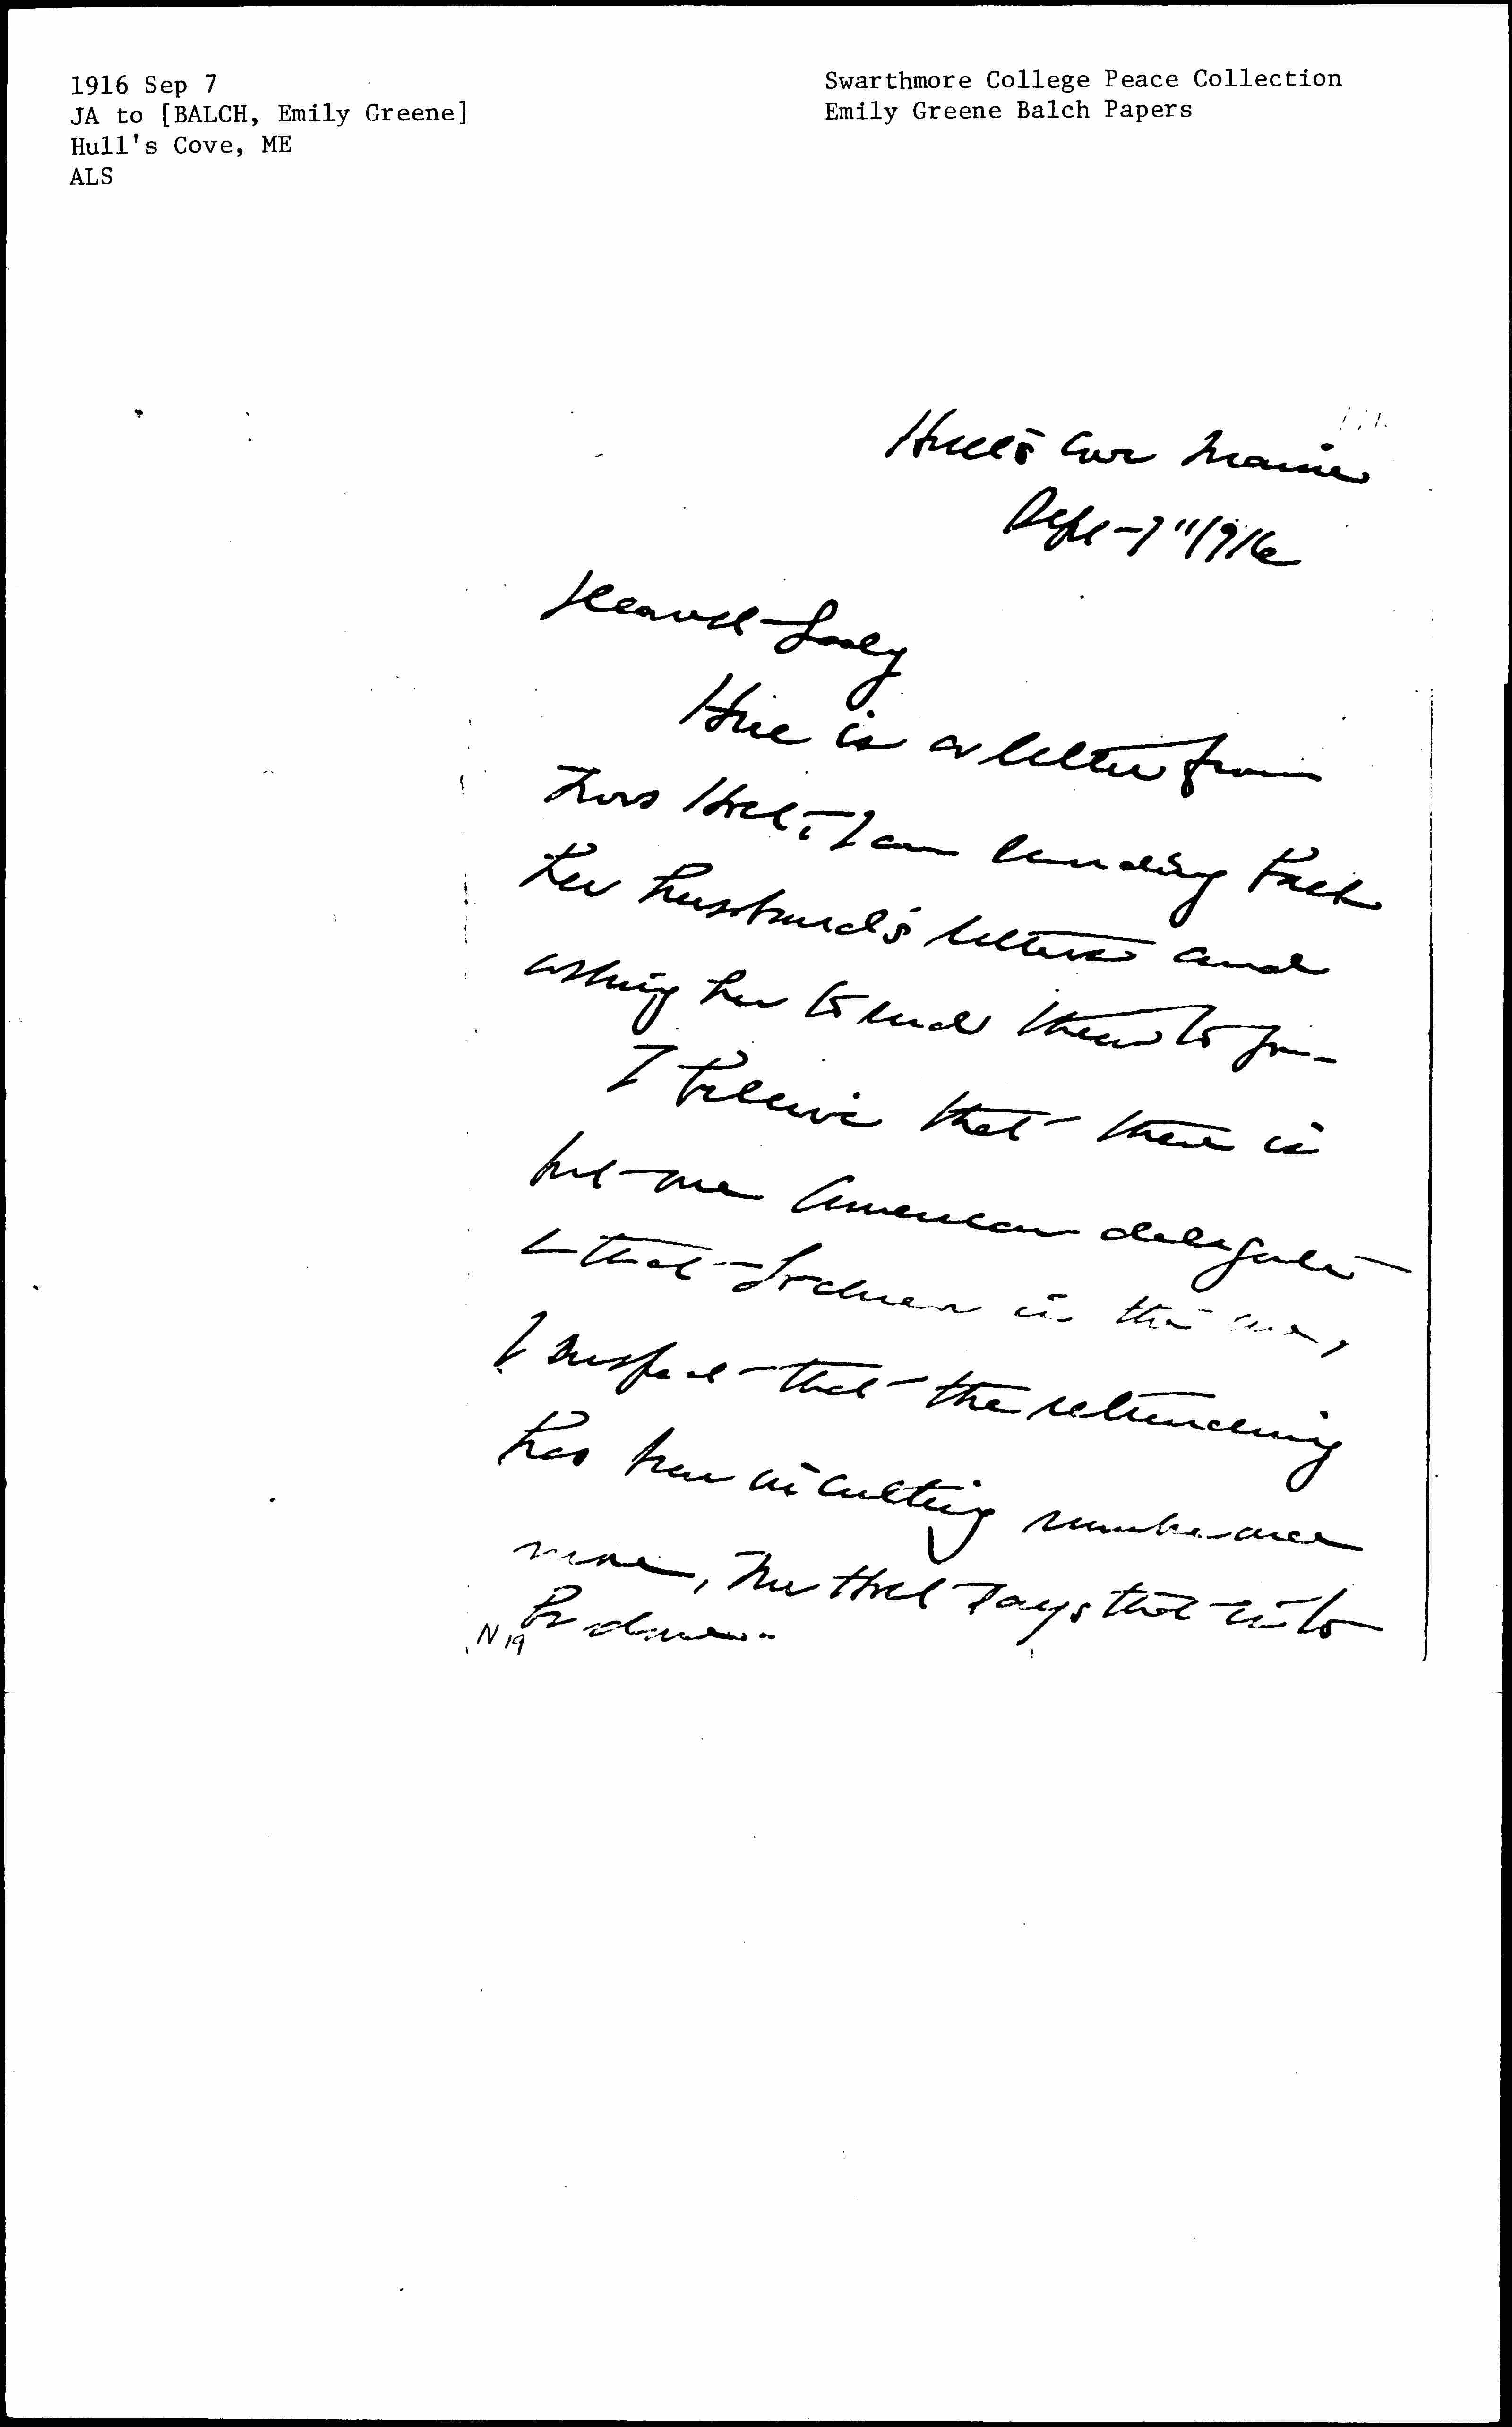 1916 Sep 7
JA to [BALCH, Emily Greene]
Hull's Cove, ME
ALS
Swarthmore College Peace Collection
Emily Greene Balch Papers
Hull's Cove Maine
Sept - 7" 1916
Dearest Lady
Here is a letter from
Mrs Hull, I am sending back
her husband's letters and
asking her to send them to you -
I believe that there is
but one American delegate
& that Lochner is the one,
I suspect that the refunding
has been
more, Mrs Hull says that is to
be done.
N 19